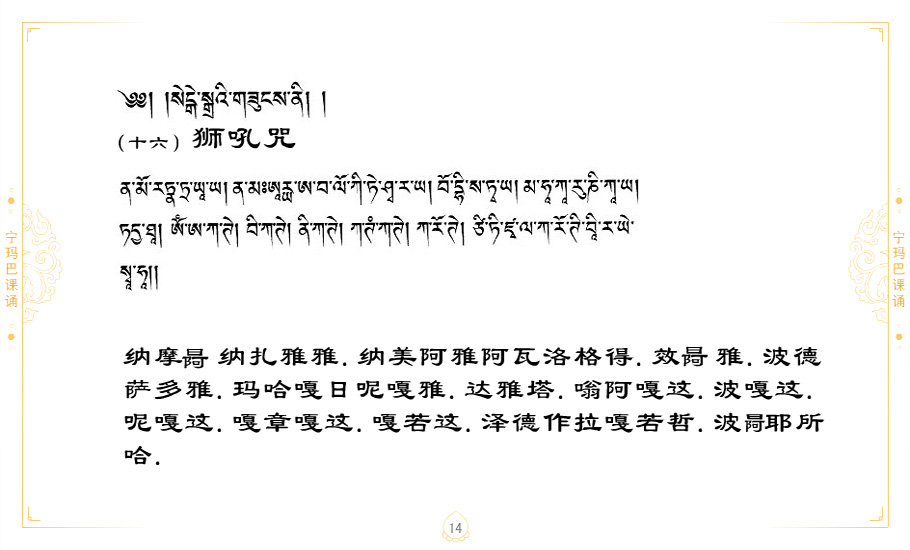 ༄༅། །སེངྒེ་སྒྲའི་གཟུངས་ནི། །
（十六）狮吼咒
ན་མོ་རཏྣ་ཏྲ་ཡཱ་ཡ། ན་མཿཨཱརྱ་ཨ་བ་ལོ་ཀི་ཏེ་ཤྭ་ར་ཡ། བོ་དྷི་ས་ཏྭ་ཡ། མ་ཧཱ་ཀཱ་རུ་ཎི་ཀཱ་ཡ།
ཏདྱ་ཐཱ། ཨོཾ་ཨ་ཀ་ཊེ། བི་ཀ་ཊེ། ནི་ཀ་ཊེ། ཀ་ཊཾ་ཀ་ཊེ། ཀ་རོ་ཊེ།
སྭཱ་ཧཱ།།
纳摩 纳扎雅雅. 纳美阿雅阿瓦洛格得. 效 雅. 波德
萨多雅. 玛哈嘎日呢嘎雅. 达雅塔. 嗡阿嘎这. 波嘎这.
呢嘎这. 嘎章嘎这. 嘎若这. 泽德作拉嘎若哲. 波 耶所
哈.
宁玛巴课诵
宁玛巴课诵
14